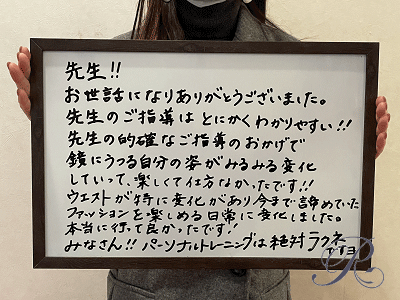 先生!!
お世話になりありがとうございました。
先生のご指導はとにかくわかりやすい!!
先生の的確なご指導のおかげで
鏡にうつる自分の姿がみるみる変化
していって、楽しくて仕方なかったです!!
ウエストが特に変化があり今まで諦めていた
ファッションを楽しめる日常に変化しました。
本当に行って良かったです!
みなさん!!パーソナルトレーニングは絶対ラクネ
ですヨ
R